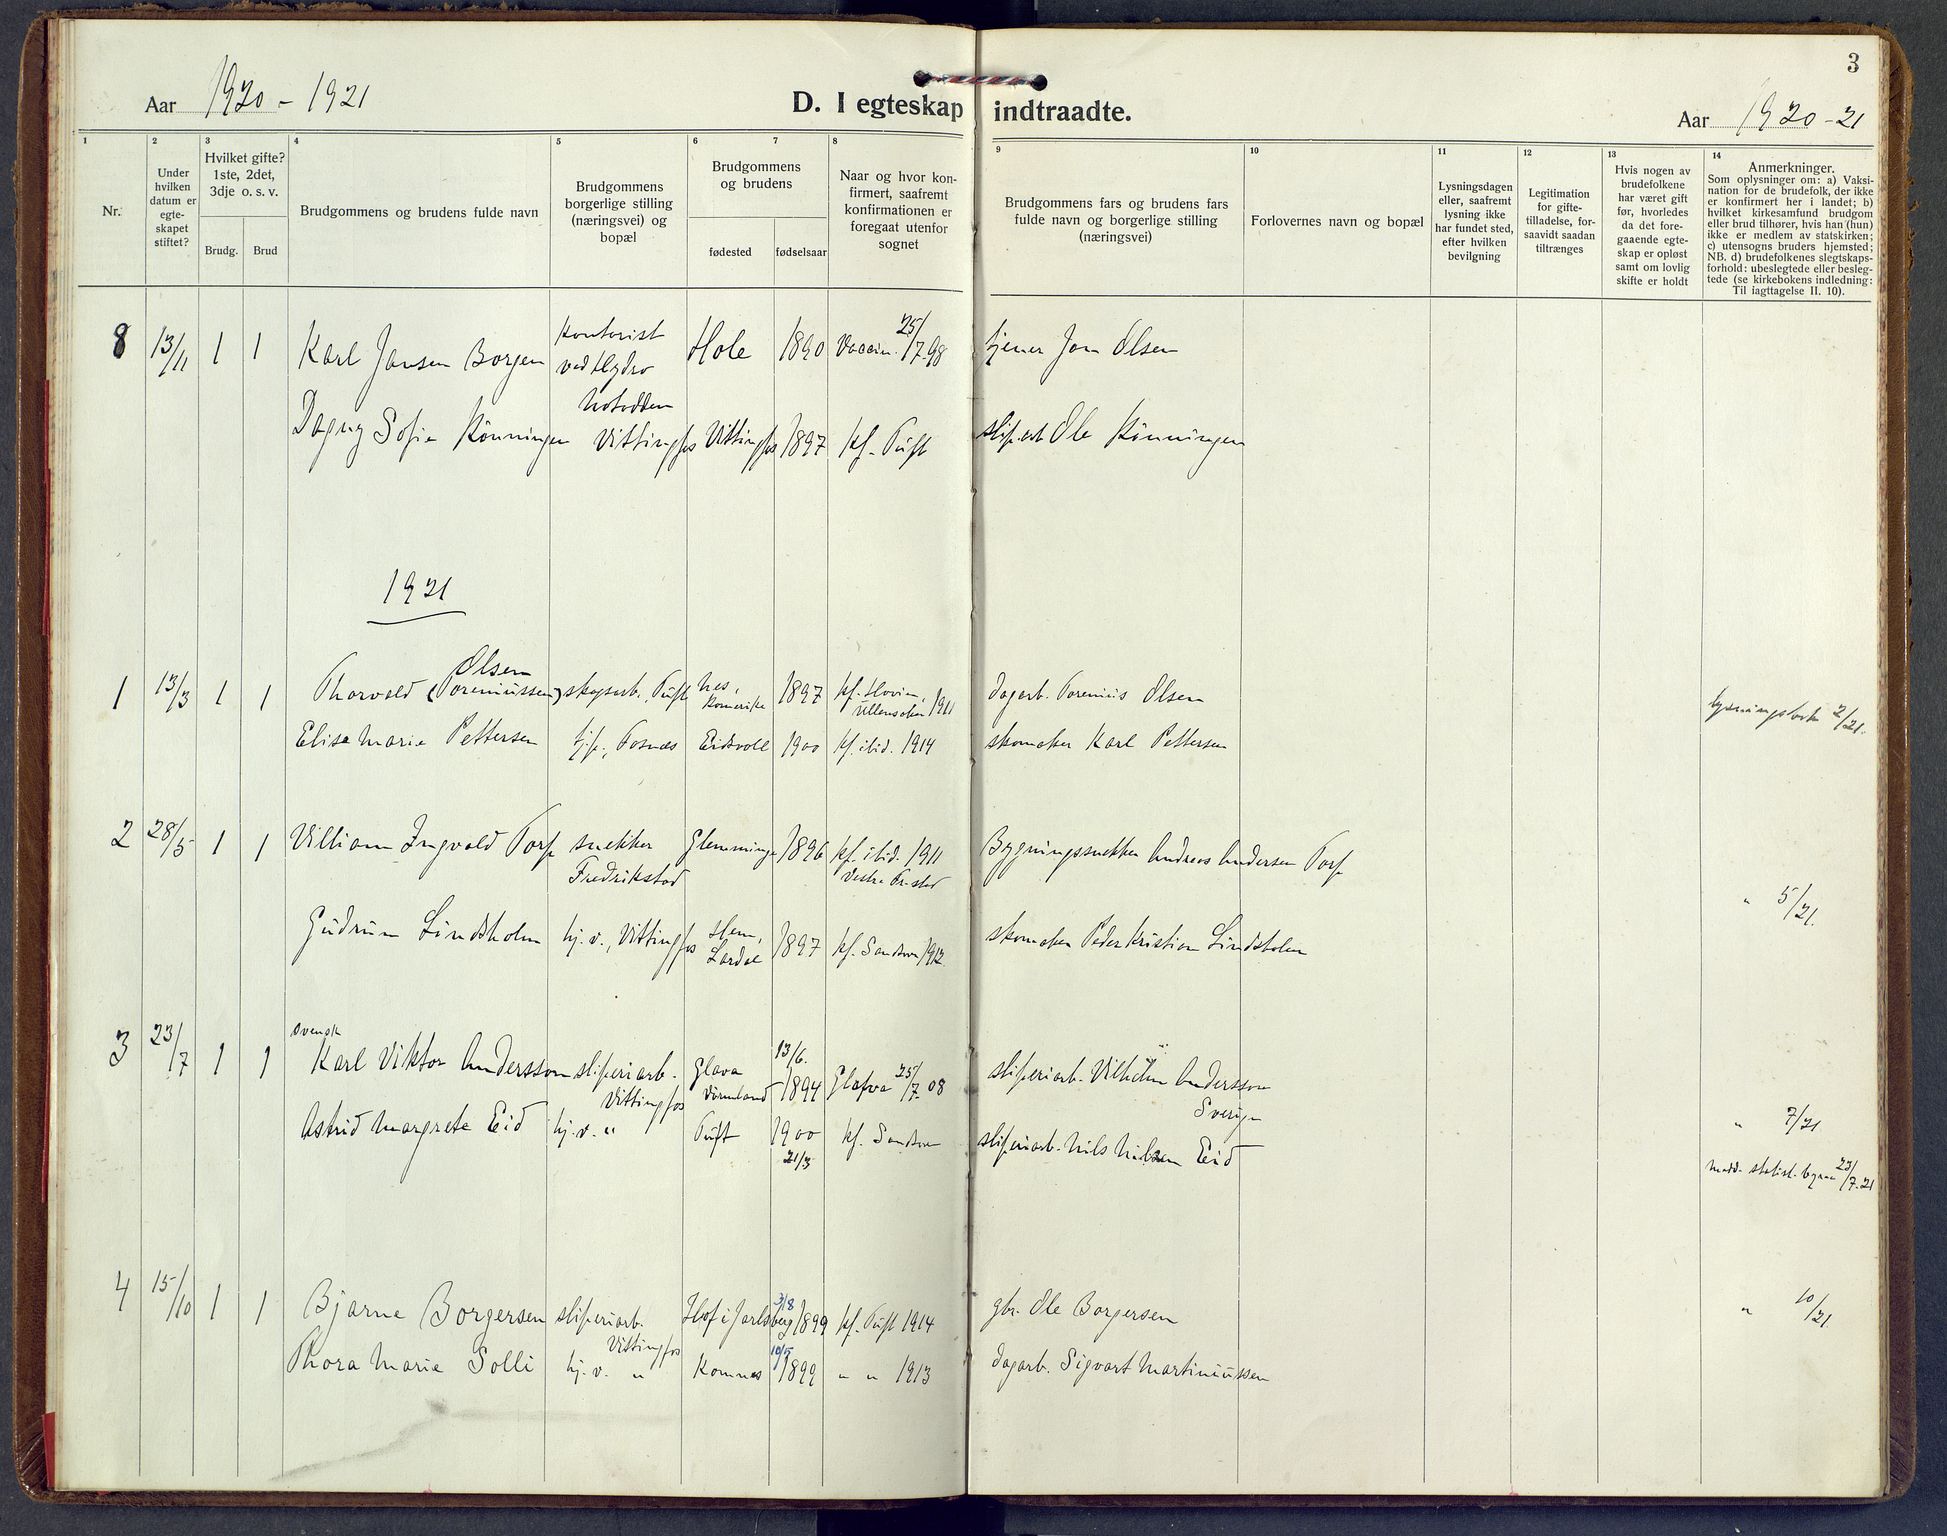 3
Aar 1920-1921
D. I egteskap indtraadte.
Aar 1920-21
1
2
3
4
5
6
7
8
9
10
11
12
13
14
Nr.
Under hvilken datum er egte-skapet stiftet?
Hvilket gifte? 1ste, 2det, 3dje o. s. v.
Brudg.
Brud
Brudgommens og brudens fulde navn
Brudgommens borgerlige stilling (næringsvei) og bopæl
Brudgommens og brudens
fødested
fødselsaar
Naar og hvor kon-firmert, saafremt konfirmationen er foregaat utenfor sognet
Brudgommens fars og brudens fars fulde navn og borgerlige stilling (næringsvei)
Forlovernes navn og bopæl
Lysningsdagen eller, saafremt lysning ikke har fundet sted, efter hvilken bevilgning
Legitimation for gifte-tilladelse, for-saavidt saadan tiltrænges
Hvis nogen av brudefolkene har været gift før, hvorledes da det fore-gaaende egte-skap er opløst samt om lovlig skifte er holdt
Anmerkninger.
Som oplysninger om: a) Vaksi-nation for de brudefolk, der ikke er konfirmert her i landet; b) hvilket kirkesamfund brudgom eller brud tilhører, hvis han (hun) ikke er medlem av statskirken; c) utensogns bruders hjemsted; NB. d) brudefolkenes slegtskaps-forhold: ubeslegtede eller besleg-tede (se kirkebokens indledning: Til iagttagelse II. 10).
8 13/11 1 1 Karl Jansen Borgen kontorist ved Hydro Notodden Hole 1890 Vaccin. 25/7-98 tjener Jon Olsen
Dagny Sofie Rønningen Vittingfos Vittingfos 1897 kf. Tuft sliperiarb Ole Rønningen
1921
1 13/3 1 1 Thorvald Olsen (Toreniussen) skogsarb., Tuft Nes, Romerike 1897 kf. Hovin, Ullensaker 1911 dagarb. Torenius Olsen
Elise Marie Pettersen tjp., Fosnæs Eidsvoll 1900 kf. ibid. 1914 skomaker Karl Pettersen lysningsbevis 2/21.
2 28/5 1 1 Villiam Ingvald Torp snekker Fredrikstad Glemminge 1896 kf. ibid. 1911 Vestre Fr.stad Bygningssnekker Andreas Andersen Torp
Gudrun Lindsholm hj. v., Vittingfos Hem, Lardal 1897 kf. Sandsvær 1912. skomaker Peder Kristian Lindsholm " 5/21.
3 23/7 1 1 svensk Karl Viktor Andersson sliperiarb. Vittingfos Glava Värmland 13/6. 1894 Glafva 25/7-08 sliperiarb. Vilhelm Andersson Sverige
Astrid Margrete Eid hj. v. " Tuft 1900 21/3 kf. Sandsvær sliperiarb. Nils Nilsen Eid " 7/21
medd. statist. byraa 23/7-21
4 15/10 1 1 Bjarne Borgersen sliperiarb. Vittingfos Hof i Jarlsberg 3/8 1899 kf. Tuft 1914 gbr. Ole Borgersen " 10/21.
Thora Marie Solli hj. v. " Komnes 10/5 1899 " " 1913 dagarb. Sigvart Martiniussen